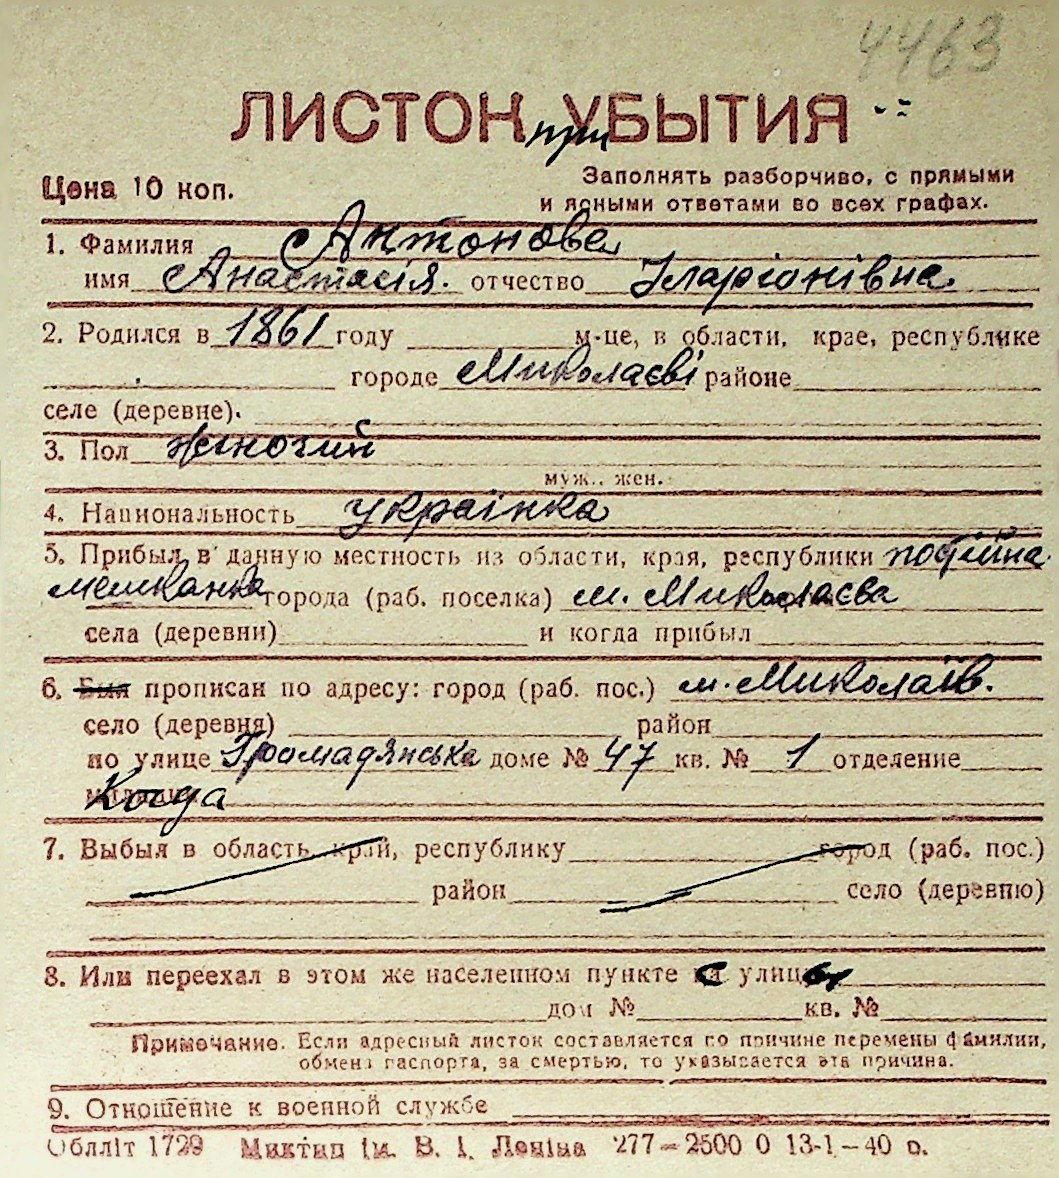 4463
ЛИСТОК при УБЫТИЯ
Цена 10 коп.
Заполнять разборчиво, с прямыми
и ясными ответами во всех графах.
1. Фамилия Антонова
имя Анастасія. отчество Іларіонівна.
2. Родился в 1861 году м-це, в области, крае, республике
городе Миколаєві районе
селе (деревне).
3. Пол жіночий
муж., жен.
4. Национальность українка
5. Прибыл в данную местность из области, края, республики постійна
мешканка города (раб. поселка) м. Миколаєва
села (деревни) и когда прибыл
6. Был прописан по адресу: город (раб. пос.) м. Миколаїв.
село (деревня) район
по улице Громадянська доме № 47 кв. № 1 отделение
Когда
7. Выбыл в область, край, республику город (раб. пос.)
район село (деревню)
8. Или переехал в этом же населенном пункте с улицы
дом № кв. №
Примечание. Если адресный листок составляется по причине перемены фамилии,
обмена паспорта, за смертью, то указывается эта причина.
9. Отношение к военной службе
Облліт 1729 Миктип ім. В. І. Леніна 277—2500 0 13-1—40 р.